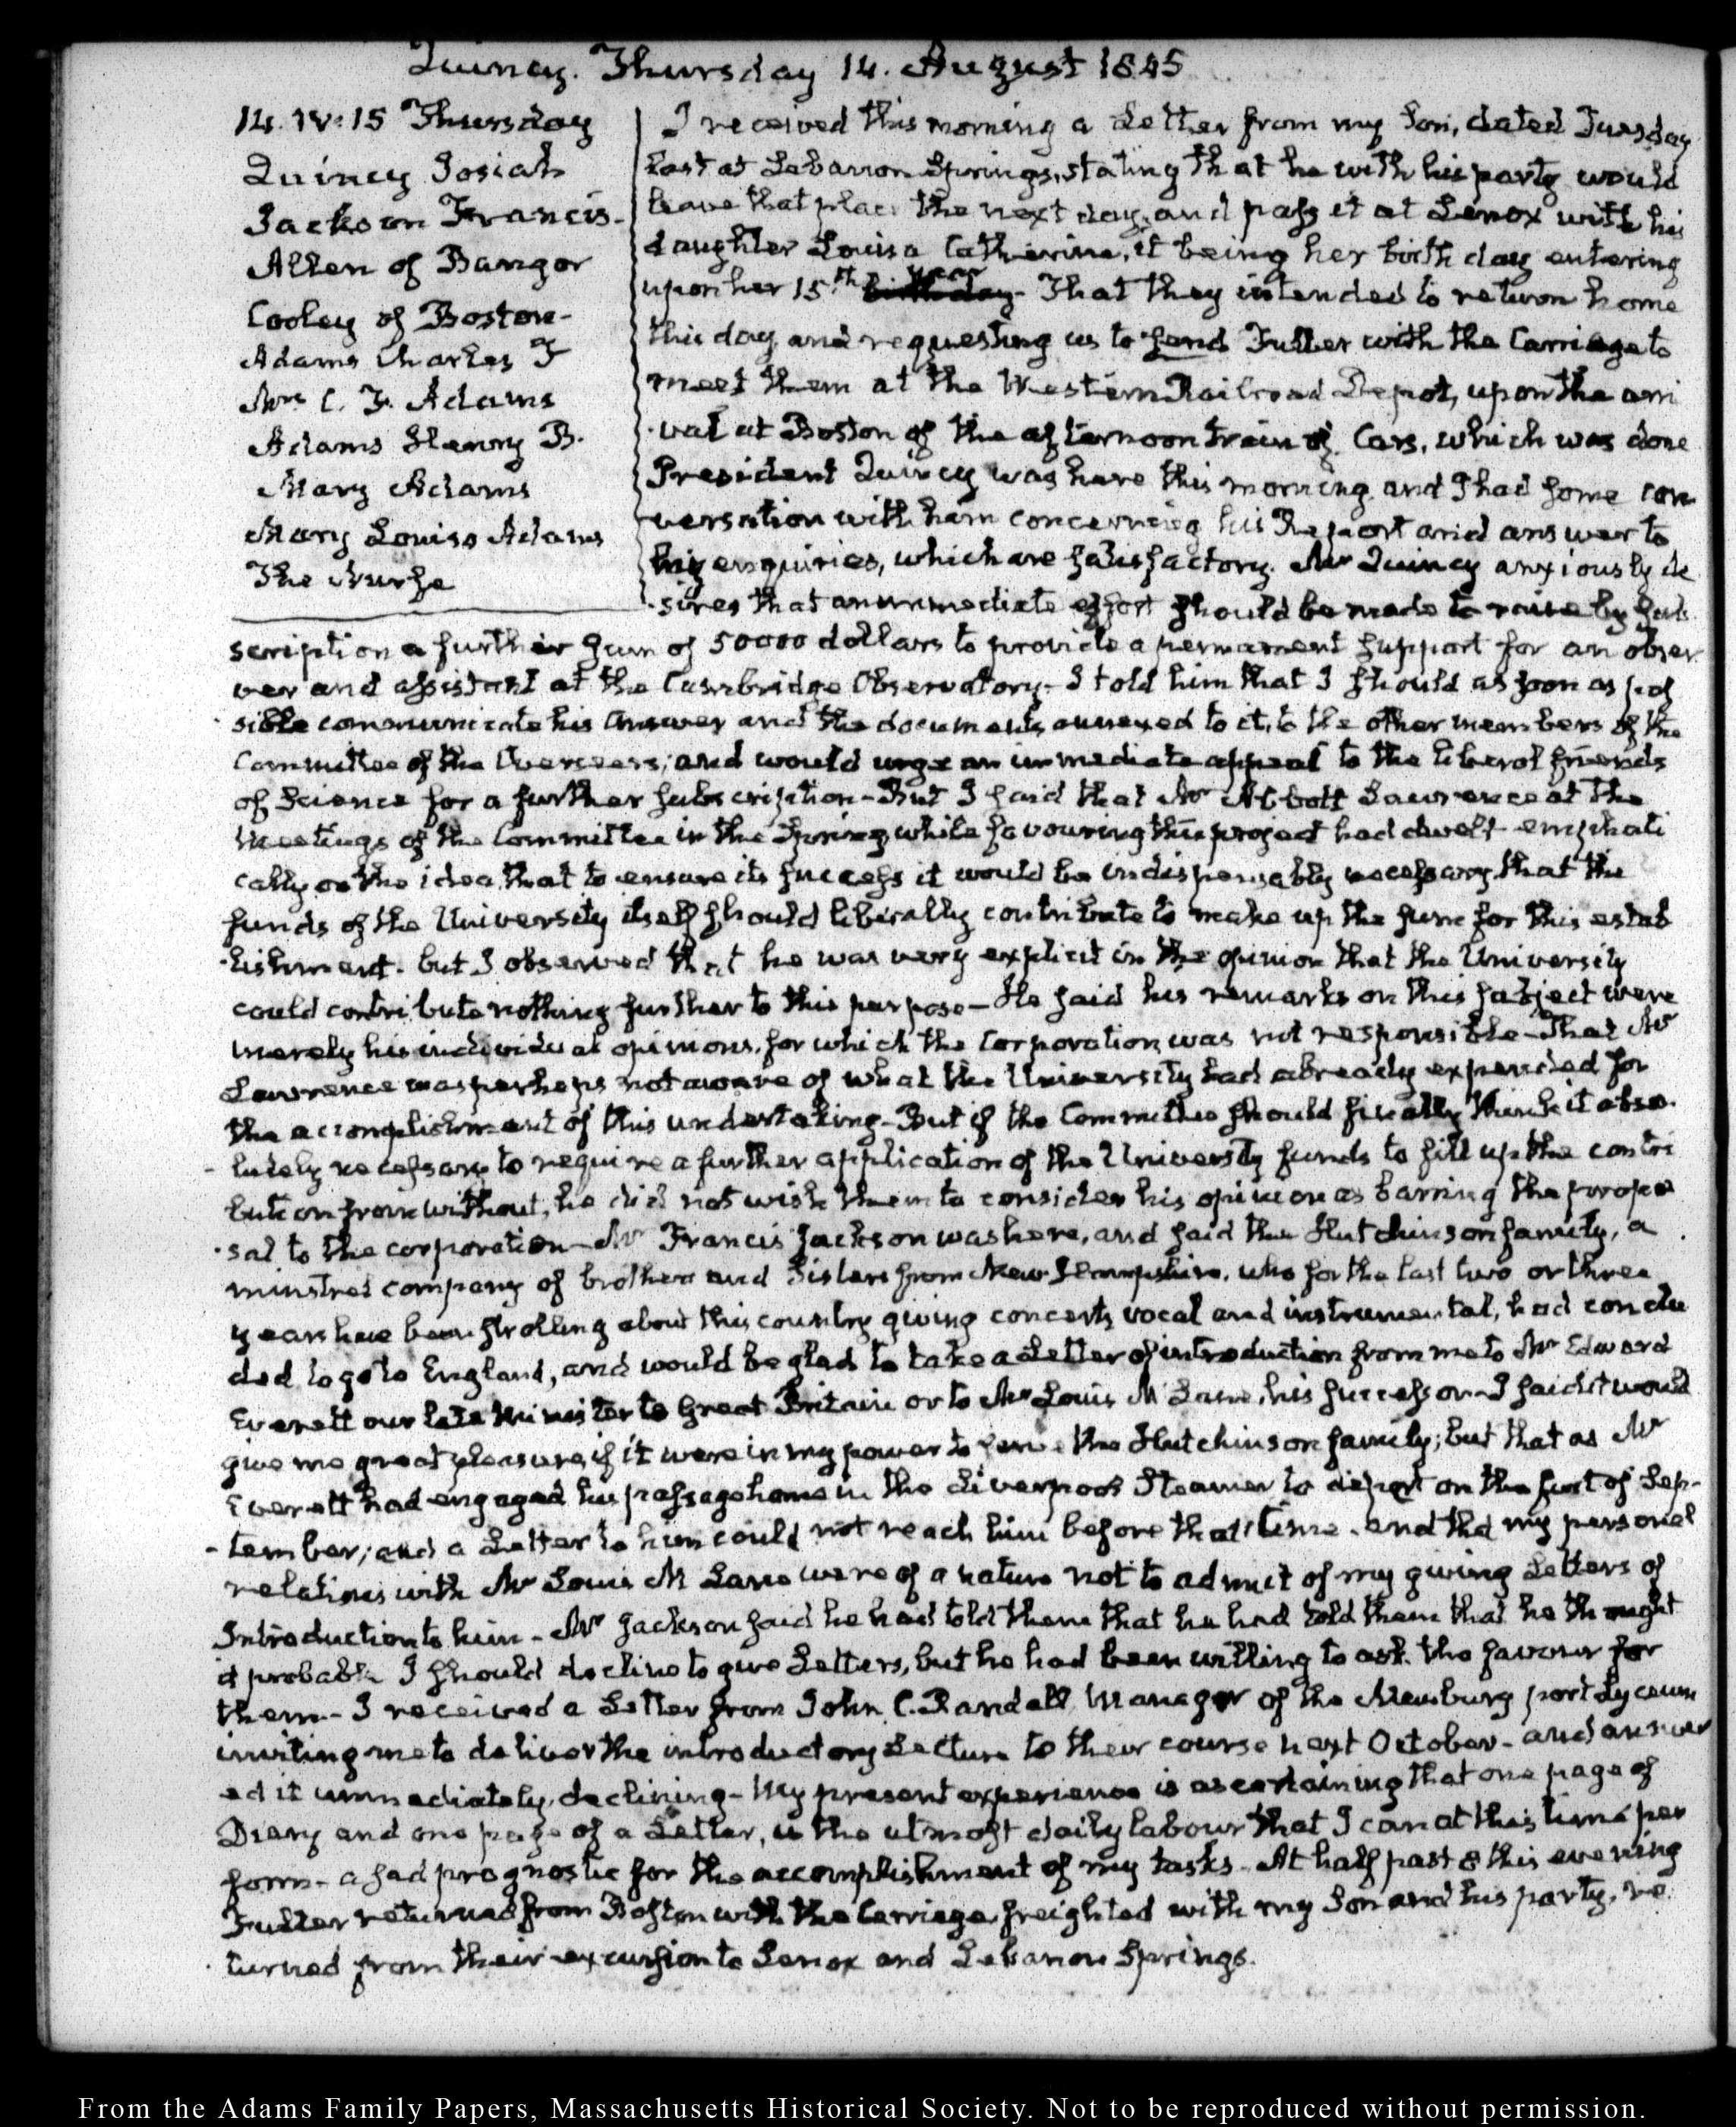 Quincy. Thursday 14. August 1845
14. IV:15 Thursday
Quincy Josiah
Jackson Francis-
Allen of Bangor
Cooley of Boston-
Adams Charles F
Mrs. C. F. Adams
Adams Henry B.
Mary Adams
Mary Louisa Adams
The Nurse
I received this morning a Letter from my Son, dated Tuesday
last at Lebanon Springs, stating that he with his party would
leave that place the next day, and pass it at Lenox with his
daughter Louisa Catherine, it being her birth day entering
upon her 15th. birth day year- That they intended to return home
this day, and requesting us to send Fuller with the Carriage to
meet them at the Western Railroad Depot, upon the arri
-val at Boston of the afternoon train of Cars, which was done
President Quincy was here this morning, and I had some con
versation with him concerning his Report and answer to
my enquiries, which are satisfactory. Mr Quincy anxiously de
-sires that an immediate effort should be made to raise by sub
scription a further sum of 50000 dollars to provide a permanent support for an obser
ver and assistant at the Cambridge Observatory- I told him that I should as soon as pos
sible communicate his Answer and the documents annexed to it, to the other members of the
Committee of the Overseers; and would urge an immediate appeal to the liberal friends
of Science for a further subscription- But I said that Mr Abbott Lawrence at the
meetings of the Committee in the Spring while favouring this project had dwelt emphati
cally on the idea that to ensure its success it would be indispensably necessary that the
funds of the University itself should liberally contribute to make up the sum for this estab
-lishment. but I observed that he was very explicit in the opinion that the University
could contribute nothing further to this purpose- He said his remarks on this subject were
merely his individual opinions, for which the Corporation was not responsible- That Mr
Lawrence was perhaps not aware of what the University had already expended for
the accomplishment of this undertaking- But if the Committee should finally think it abso-
-lutely necessary to require a further application of the University funds to fill up the contri
bution from without, he did not wish them to consider his opinion as barring the propo
-sal to the corporation- Mr Francis Jackson was here, and said the Hutchinson family, a
minstrel company of brothers and Sisters from New Hampshire, who for the last two or three
years have been strolling about this country giving concerts vocal and instrumental, had conclu
ded to go to England, and would be glad to take a Letter of introduction from me to Mr Edward
Everett our late Minister to Great Britain or to Mr Louis McLane, his successor- I said it would
give me great pleasure if it were in my power to serve the Hutchinson family; but that as Mr
Everett had engaged his passage home in the Liverpool Steamer to depart on the first of Sep-
-tember; and a Letter to him could not reach him before that time. and that my personal
relations with Mr Louis McLane were of a nature not to admit of my giving Letters of
Introduction to him- Mr Jackson said he had told them that he had told them that he thought
it probable I should decline to give Letters, but he had been willing to ask the favour for
them- I received a Letter from John C. Randall, Manager of the Newburyport Lyceum
inviting me to deliver the introductory Lecture to their course next October- and answer
ed it immediately, declining- My present experience is ascertaining that one page of
Diary and one page of a Letter, is the utmost daily labour that I can at this time per
form- a sad prognostic for the accomplishment of my tasks- At half past 8 this evening
Fuller returned from Boston with the Carriage, freighted with my Son and his party, re
turned from their excursion to Lenox and Lebanon Springs.
From the Adams Family Papers, Massachusetts Historical Society. Not to be reproduced without permission.